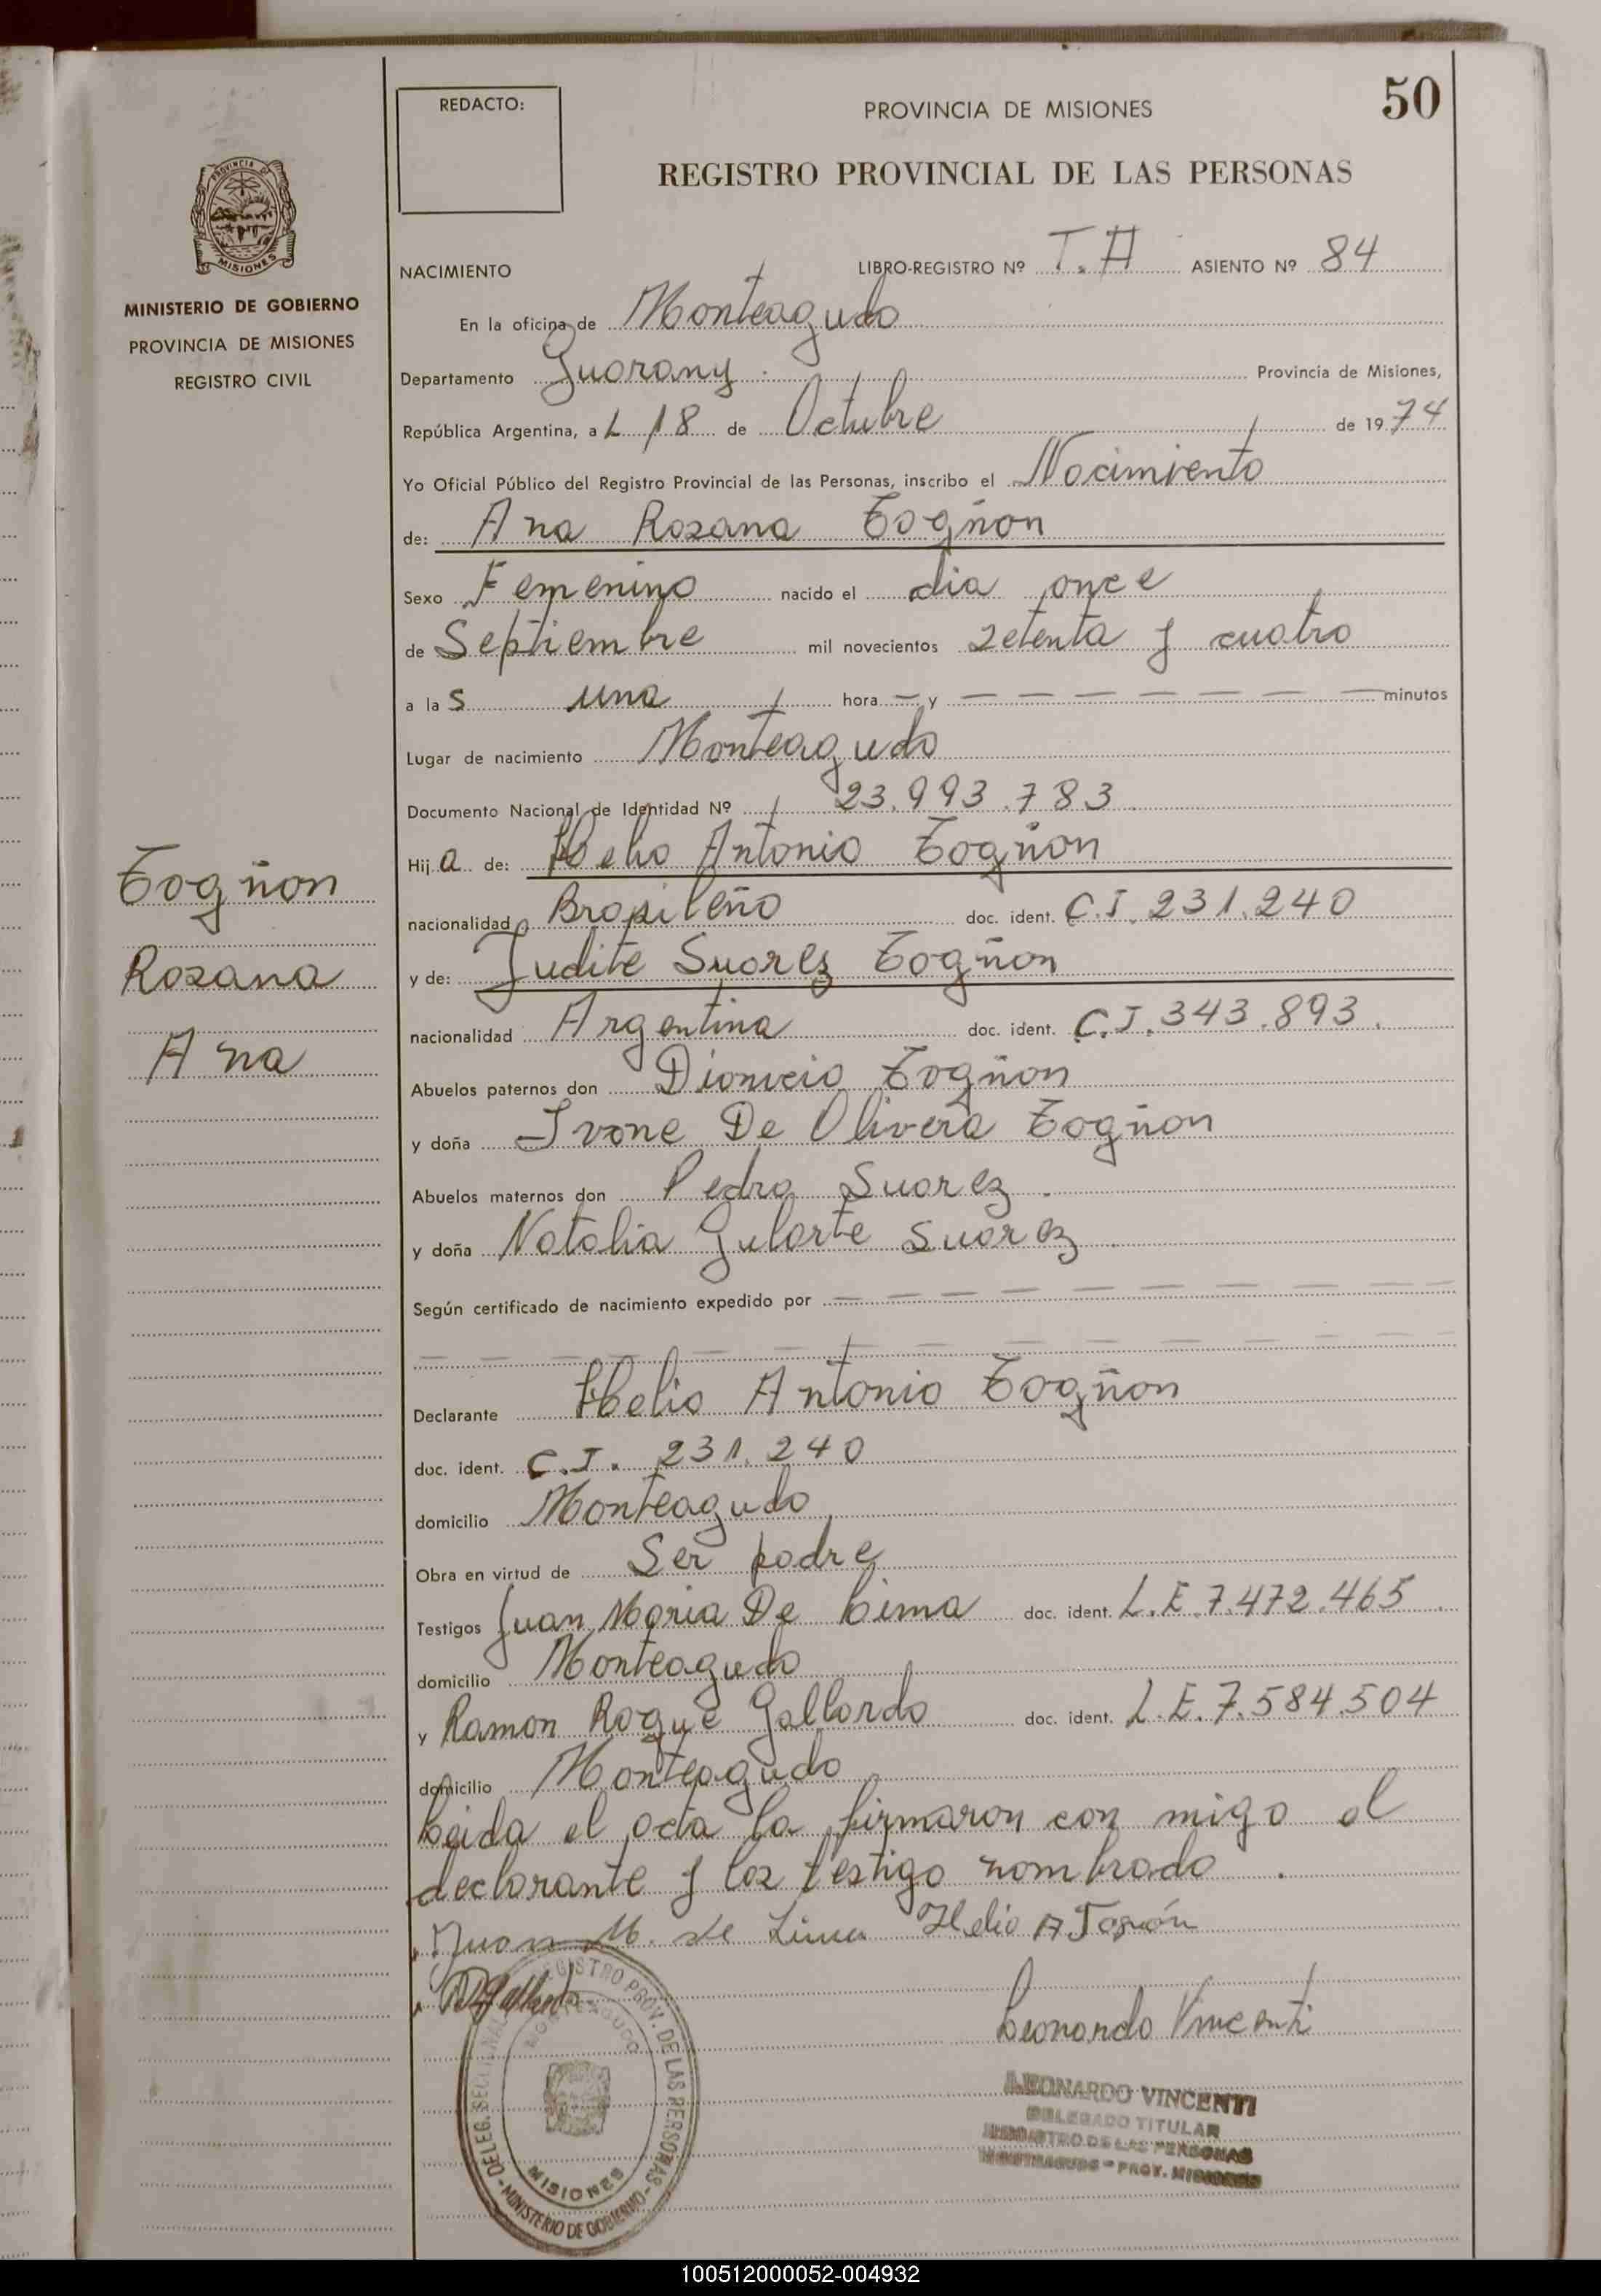 REDACTO:
PROVINCIA DE MISIONES
50
REGISTRO PROVINCIAL DE LAS PERSONAS
PROVINCIA DE
MISIONES
MINISTERIO DE GOBIERNO
PROVINCIA DE MISIONES
REGISTRO CIVIL
NACIMIENTO LIBRO-REGISTRO Nº T. A ASIENTO Nº 84
En la oficina de Monteagudo
Departamento Guarany Provincia de Misiones,
República Argentina, a L 18 de Octubre de 1974
Yo Oficial Público del Registro Provincial de las Personas, inscribo el Nacimiento
de: Ana Rosana Togñon
Sexo Femenino nacido el dia once
de Septiembre mil novecientos setenta y cuatro
a las una hora — y — — — — — — — minutos
Lugar de nacimiento Monteagudo
Documento Nacional de Identidad Nº 23.993.783
Hija de: Helio Antonio Togñon
nacionalidad Brasileño doc. ident. C.I. 231.240
y de: Judite Suarez Togñon
nacionalidad Argentina doc. ident. C.I. 343.893.
Abuelos paternos don Dionicio Togñon
y doña Ivone De Olivera Togñon
Abuelos maternos don Pedro Suarez
y doña Natalia Gularte Suarez
Según certificado de nacimiento expedido por — — — — — — —
Togñon
Rosana
Ana
Declarante Helio Antonio Togñon
doc. ident. C.I. 231.240
domicilio Monteagudo
Obra en virtud de Ser padre
Testigos Juan Maria De Lima doc. ident. L.E. 7.472.465
domicilio Monteagudo
y Ramon Roque Gallardo doc. ident. L.E. 7.584.504
domicilio Monteagudo
Leida el acta la firmaron con migo el
declarante y los testigo nombrado.
Juan M. de Lima Helio A Togñón
Leonardo Vincenti
REGISTRO PROV. DE LAS PERSONAS - MINISTERIO DE GOBIERNO - DELEG. SECCIONAL
MONTEAGUDO
MISIONES
LEONARDO VINCENTI
DELEGADO TITULAR
REGISTRO DE LAS PERSONAS
MONTEAGUDO - PROV. MISIONES
100512000052-004932